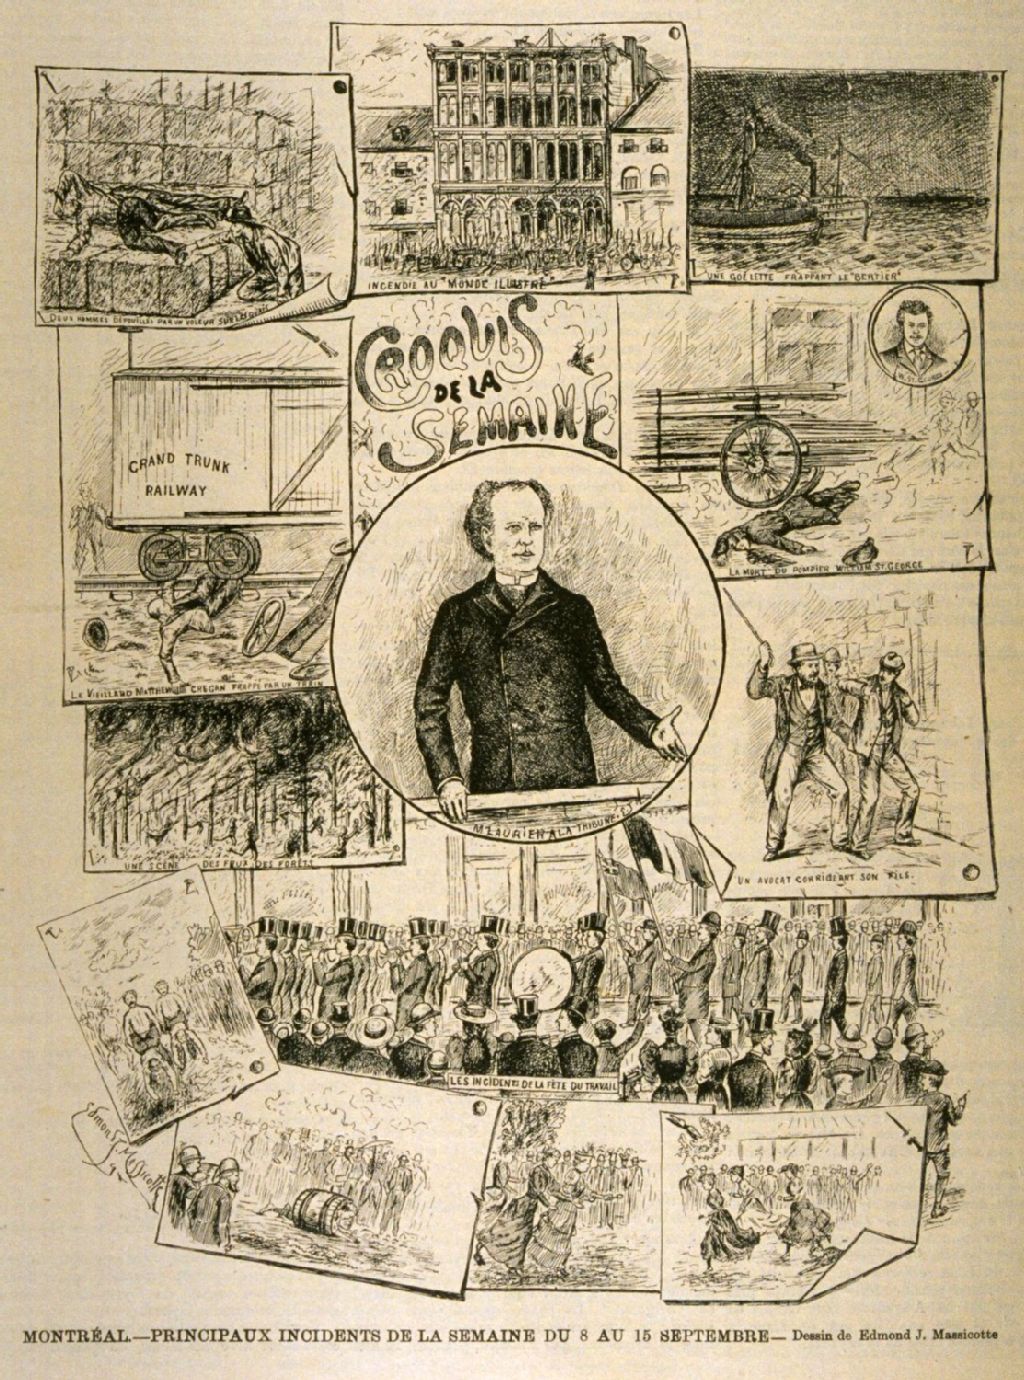 INCENDIE AU "MONDE ILLUSTRÉ"
UNE GOËLETTE FRAPPANT LE "BERTIER"
DEUX HOMMES DÉPOUILLÉS PAR UN VOLEUR SUR
CROQUIS
DE LA
SEMAINE
GRAND TRUNK
RAILWAY
LA MORT DU POMPIER WILLIAM ST. GEORGE
LE VIEILLARD MATTHEW CREGAN FRAPPÉ PAR UN TRAIN
M LAURIER A LA TRIBUNE
UNE SCÈNE DES FEUX DES FORÊTS
UN AVOCAT CORRIGEANT SON FILS.
LES INCIDENTS DE LA FÊTE DU TRAVAIL
EDMOND J. MASSICOTTE
MONTRÉAL.—PRINCIPAUX INCIDENTS DE LA SEMAINE DU 8 AU 15 SEPTEMBRE— Dessin de Edmond J. Massicotte